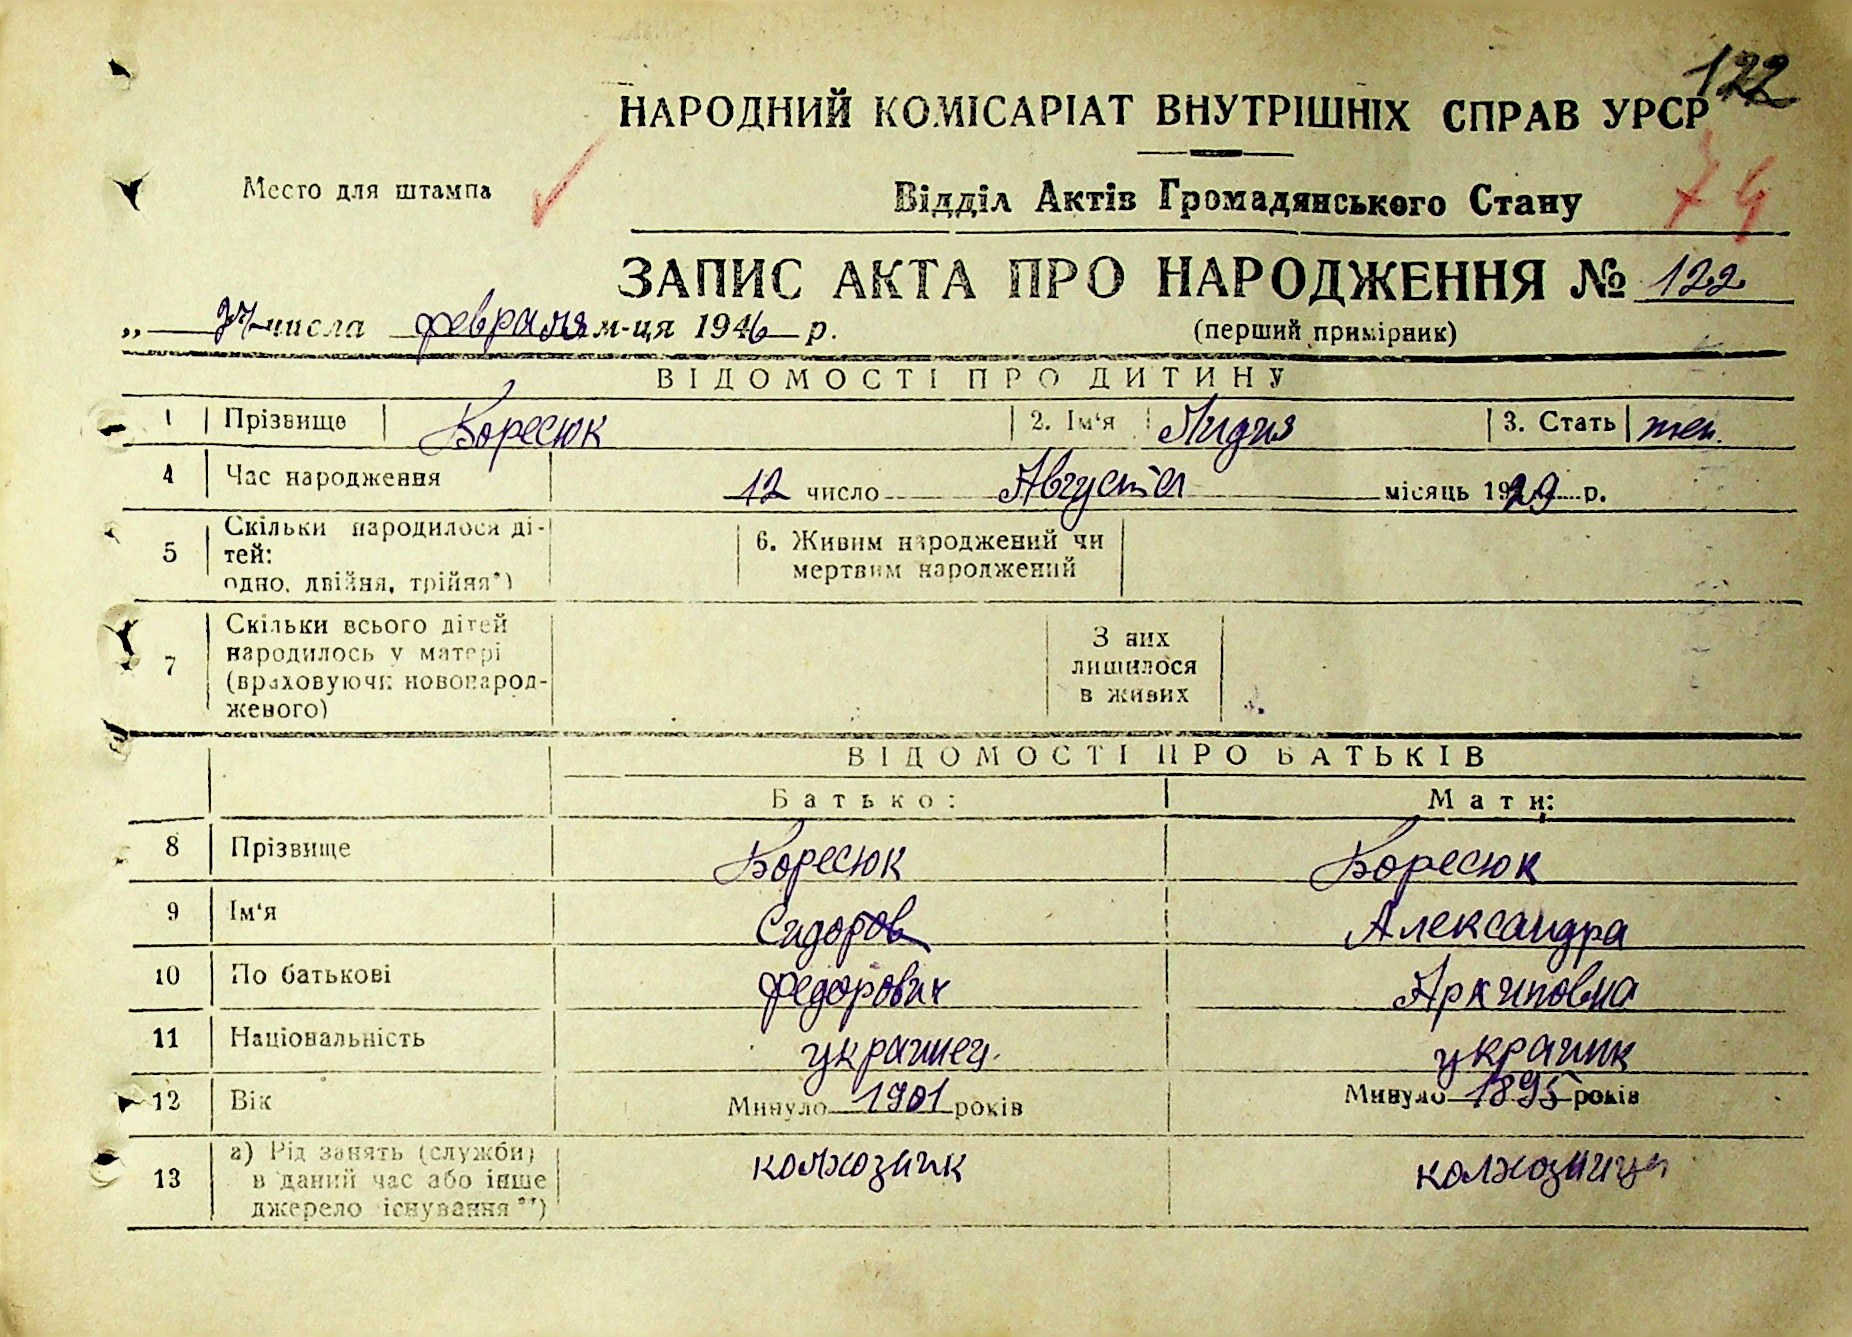 122
НАРОДНИЙ КОМІСАРІАТ ВНУТРІШНІХ СПРАВ УРСР
Место для штампа
Відділ Актів Громадянського Стану
74
ЗАПИС АКТА ПРО НАРОДЖЕННЯ № 122
„ 27 числа февраля м-ця 1946 р.
(перший примірник)
ВІДОМОСТІ ПРО ДИТИНУ
1 Прізвище Боресюк 2. Ім'я Лидия 3. Стать жен.
4 Час народження 12 число Августа місяць 1929 р.
5 Скільки народилося ді-
тей:
одно, двійня, трійня*)
6. Живим народжений чи
мертвим народжений
7 Скільки всього дітей
народилось у матері
(враховуючи новонарод-
женого)
З них
лишилося
в живих
ВІДОМОСТІ ПРО БАТЬКІВ
Батько: Мати:
8 Прізвище Боресюк Боресюк
9 Ім'я Сидоров Александра
10 По батькові Федорович Архиповна
11 Національність украинец. украинк
12 Вік Минуло 1901 років Минуло 1895 років
13 а) Рід занять (служби)
в даний час або інше
джерело існування**)
колхозник колхозница